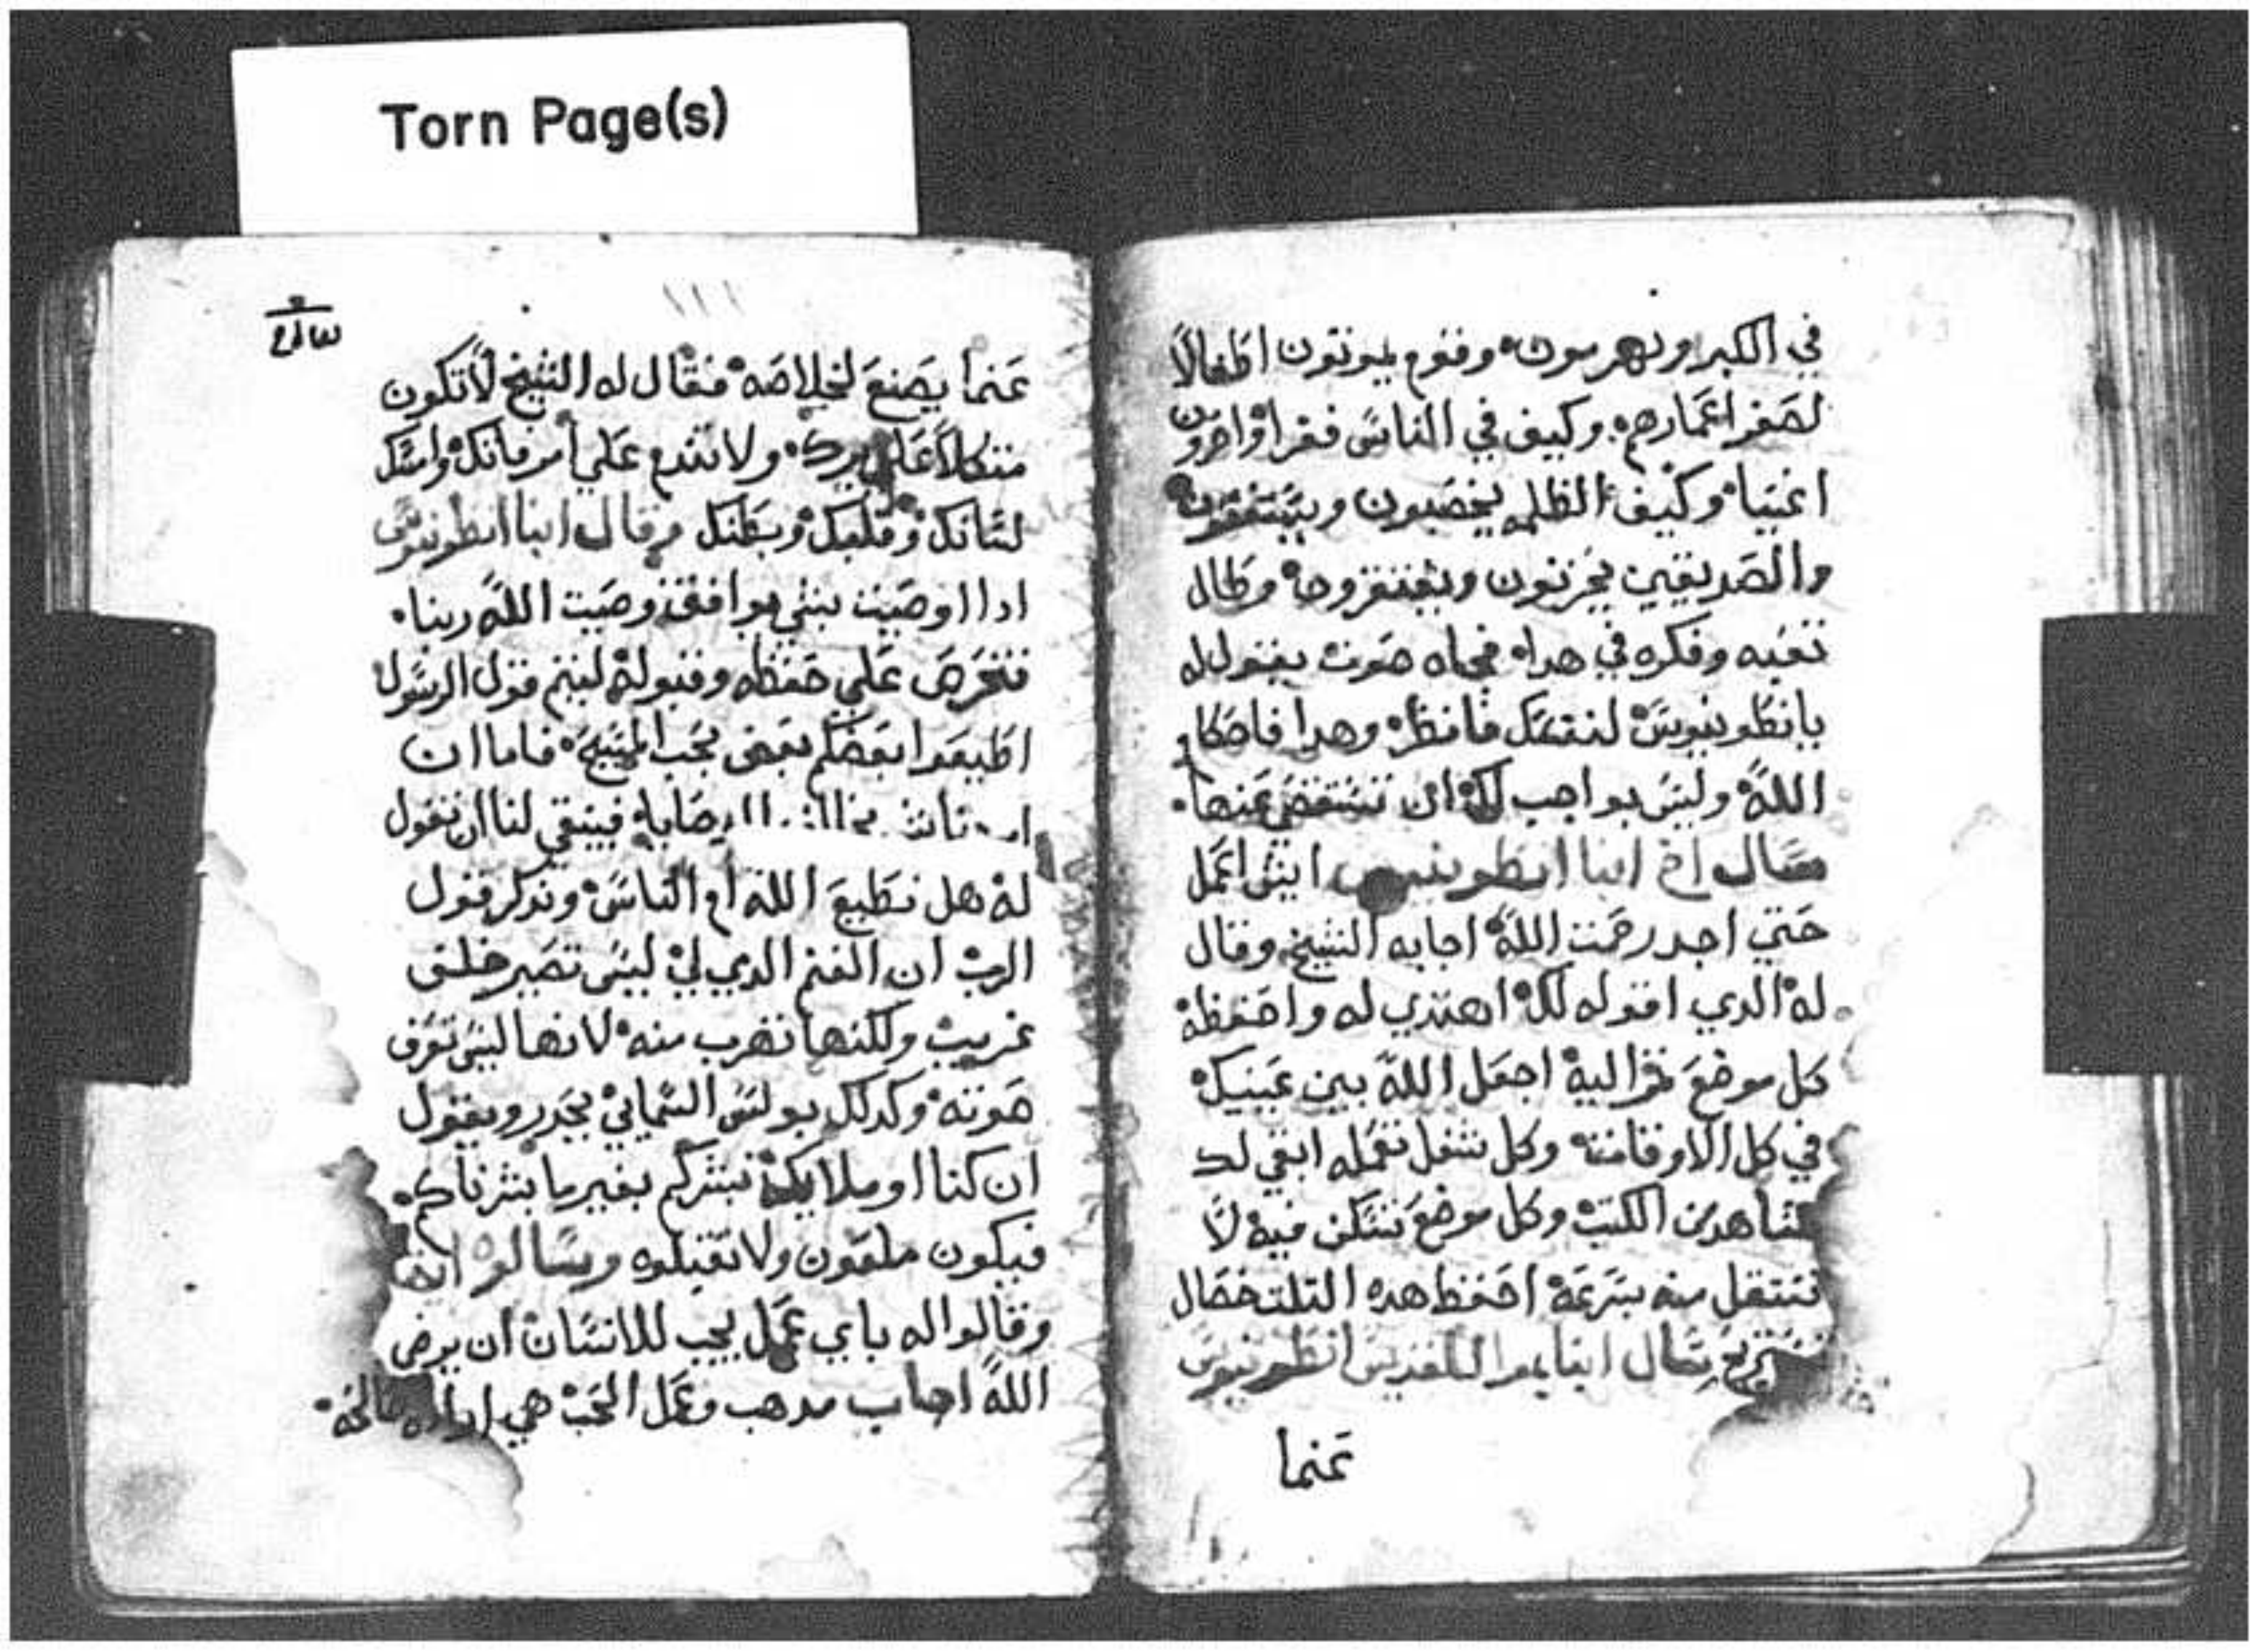 Torn Page(s)
في الكبر ويهرموت وقوم يموتون اطفالاً
لصغر اعمارهم وكيف في الناس فقرا واخرون
اغنيا وكيف الظلمه يخصبون
والصديقين يحزنون وطال
تعبه وفكره في هدا فجاه صوت يقول له
يا انطونيوس لنفسك فانظر وهدا فاحكام
الله وليس بواجب لك ان تستفضي عنها
سال اخ انبا انطونيوس ايش اعمل
حتي اجد رحمت الله اجابه الشيخ وقال
له الدي اقوله لك اهتدي له واحفظه
كل موضع اليه اجعل الله بين عينيك
في كل الاوقات وكل شغل تعمله ابقي لك
شاهد من الكتب وكل موضع تسكن فيه لا
تنتقل منه بسرعة احفظ هده التلت خصال
سال انبا بموا للقديس انطونيوس
عنما
١٢١
عنما يصنع لخلاصه فقال له الشيخ لا تكون
متكلاً علي برك ولا تندم علي امر فاتك وامسك
لسانك وقلبك وبطنك وقال انبا انطونيوس
ادا اوصيت بشي يوافق وصيت الله ربنا
فتحرص علي حفظه وقبوله ليتم قول الرسول
اطيعوا بعضكم بعض بحب المسيح فاما ان
وصاياه فينبغي لنا ان نقول
له هل نطيع الله ام الناس وندكر قول
الرب ان الغنم الدي لي ليس تصير خلف
غريب ولكنها تهرب منه لانها ليس تعرف
صوته وكدلك بولس السمايي يحدر ويقول
ان كنا او ملايكة نبشركم بغير ما بشرناكم
فيكون ملعون ولا تقبلوه وسالوا ايضا
وقالوا له باي عمل يجب للانسان ان يرضي
الله اجاب مدهب وعمل الحب هي